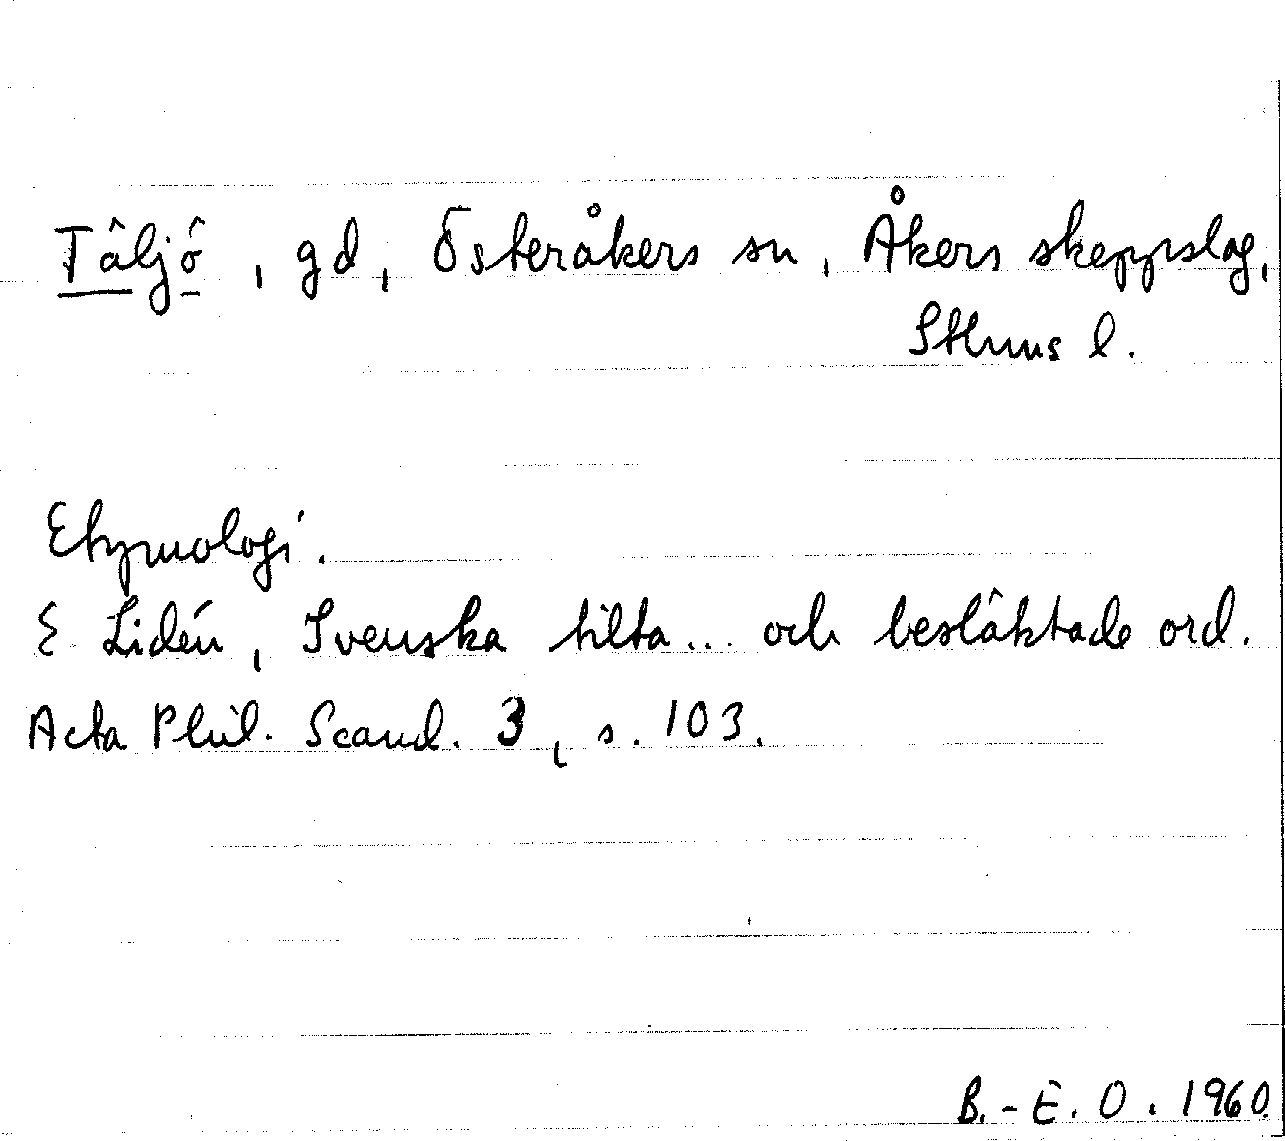 Täljö, gd, Österåkers sn, Åkers skeppslag,
Sthms l.
Etymologi.
E Lidén, Svenska tilta... och besläktade ord.
Acta Phil. Scand. 3, s. 103.
B.-E. O. 1960.